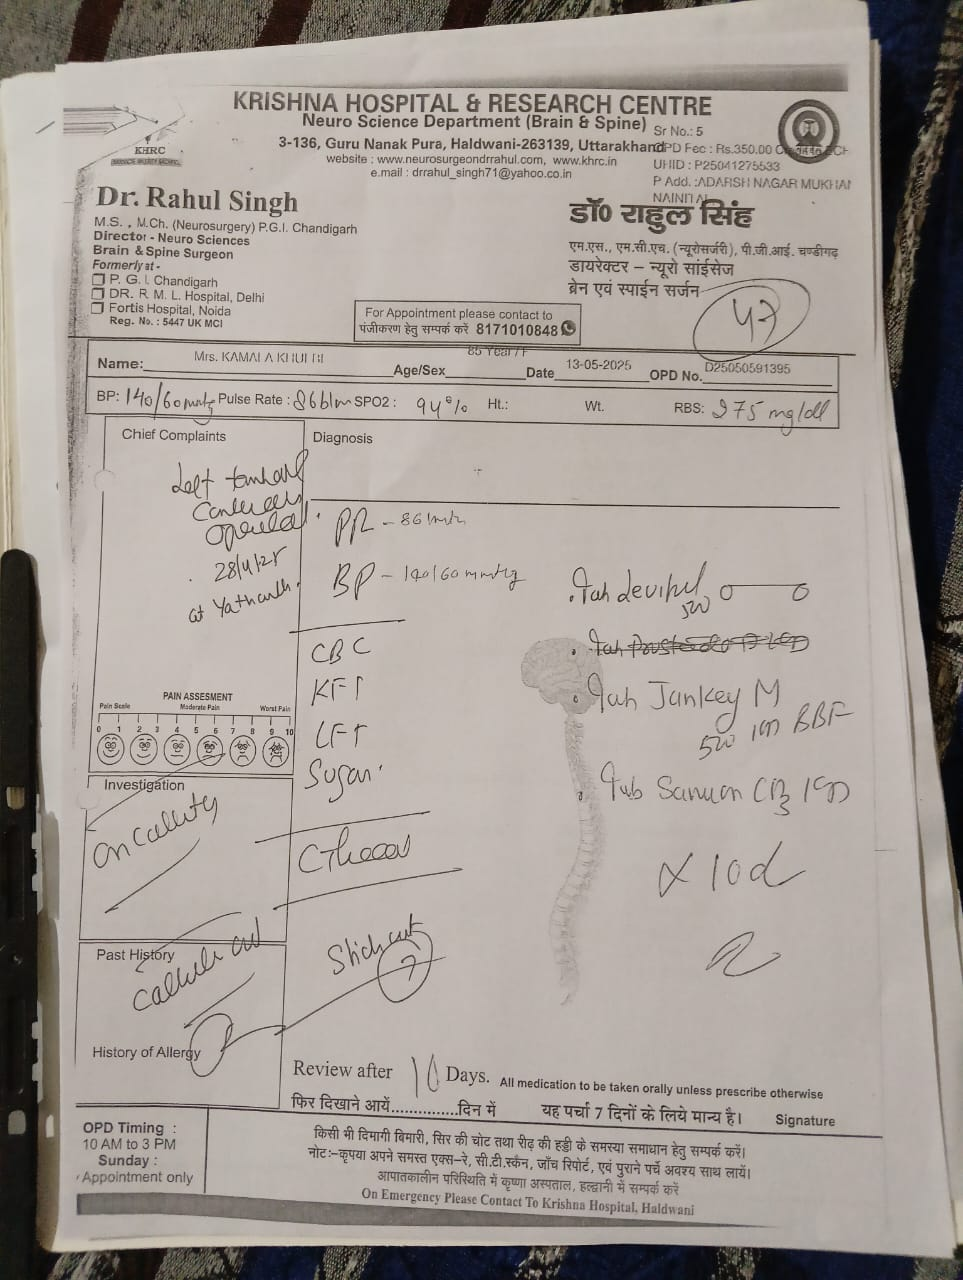 KRISHNA HOSPITAL & RESEARCH CENTRE
Neuro Science Department (Brain & Spine)
3-136, Guru Nanak Pura, Haldwani-263139, Uttarakhand
website : www.neurosurgeondrrahul.com, www.khrc.in
e.mail : drrahul_singh71@yahoo.co.in
KHRC
Sr No.: 5
OPD Fec : Rs.350.00
UHID : P25041275533
P Add. :ADARSH NAGAR MUKHAI
NAINITAL
Dr. Rahul Singh
M.S. , M.Ch. (Neurosurgery) P.G.I. Chandigarh
Director - Neuro Sciences
Brain & Spine Surgeon
Formerly at -
P. G. I. Chandigarh
DR. R. M. L. Hospital, Delhi
Fortis Hospital, Noida
Reg. No. : 5447 UK MCI
डॉ० राहुल सिंह
एम.एस., एम.सी.एच. (न्यूरोसर्जरी), पी.जी.आई. चण्डीगढ़
डायरेक्टर – न्यूरो साईसेज
ब्रेन एवं स्पाईन सर्जन
47
For Appointment please contact to
पंजीकरण हेतु सम्पर्क करें 8171010848
Name: Mrs. KAMALA Age/Sex 85 Year/F Date 13-05-2025 OPD No. D25050591395
BP: 140/60 mmHg Pulse Rate : 86 b/m SPO2 : 94% Ht.: Wt. RBS: 275 mg/dl
Chief Complaints
Left
28/4/25
at
Diagnosis
PR - 86
BP - 140/60 mmHg
CBC
KFT
LFT
Sugar
Stich cut
7
Tab 500
Tab
Tab M
500 BBF
Tab
x 10d
PAIN ASSESMENT
Pain Scale Moderate Pain Worst Pain
0 1 2 3 4 5 6 7 8 9 10
Investigation
Past History
History of Allergy
Review after 10 Days. All medication to be taken orally unless prescribe otherwise
फिर दिखाने आयें...............दिन में यह पर्चा 7 दिनों के लिये मान्य है। Signature
OPD Timing :
10 AM to 3 PM
Sunday :
Appointment only
किसी भी दिमागी बिमारी, सिर की चोट तथा रीढ़ की हड्डी के समस्या समाधान हेतु सम्पर्क करें।
नोटः–कृपया अपने समस्त एक्स–रे, सी.टी.स्कैन, जाँच रिपोर्ट, एवं पुराने पर्चे अवश्य साथ लायें।
आपातकालीन परिस्थिति में कृष्णा अस्पताल, हल्द्वानी में सम्पर्क करें
On Emergency Please Contact To Krishna Hospital, Haldwani